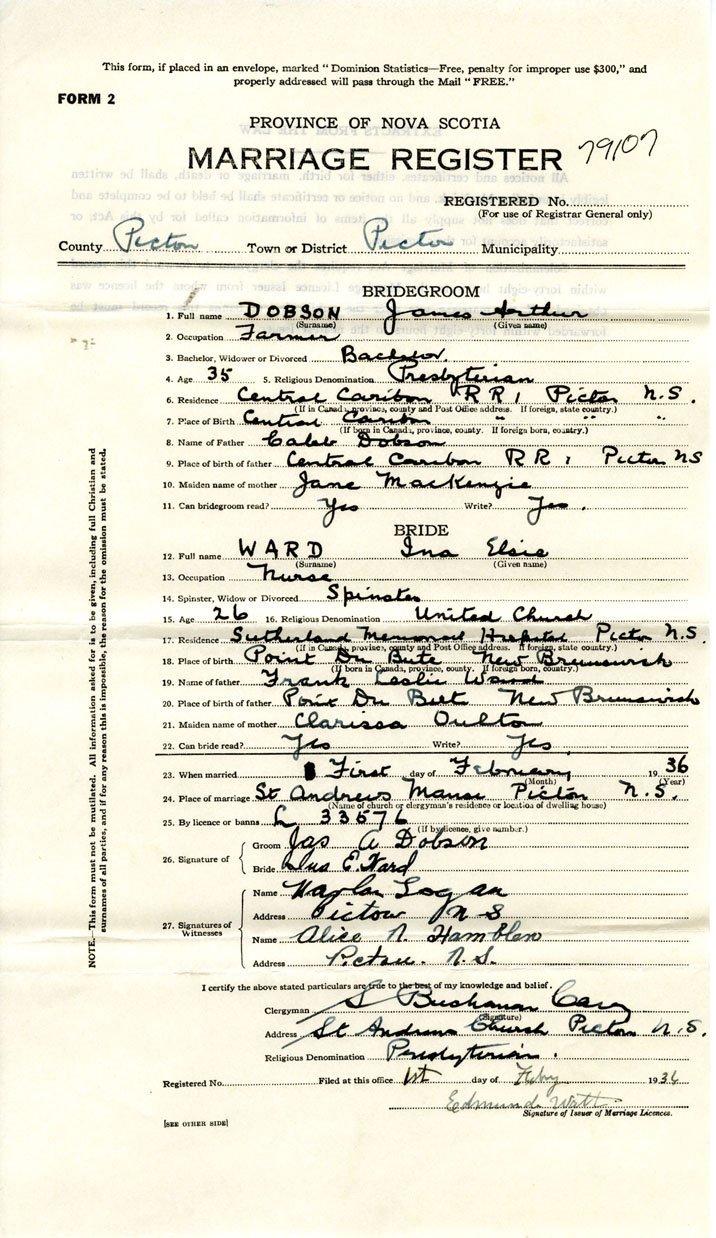 This form, if placed in an envelope, marked "Dominion Statistics—Free, penalty for improper use $300," and
properly addressed will pass through the Mail "FREE."
FORM 2
PROVINCE OF NOVA SCOTIA
MARRIAGE REGISTER 79107
REGISTERED No.
(For use of Registrar General only)
County Pictou Town or District Pictou Municipality
BRIDEGROOM
1. Full name DOBSON James Arthur
(Surname) (Given name)
2. Occupation Farmer
3. Bachelor, Widower or Divorced Bachelor
4. Age 35 5. Religious Denomination Presbyterian
6. Residence Central Caribou RR 1 Pictou N.S.
(If in Canada, province, county and Post Office address. If foreign, state country.)
7. Place of Birth Central Caribou " " "
(If born in Canada, province, county. If foreign born, country.)
8. Name of Father Caleb Dobson
9. Place of birth of father Central Caribou RR 1 Pictou NS
10. Maiden name of mother Jane MacKenzie
11. Can bridegroom read? Yes Write? Yes.
BRIDE
12. Full name WARD Ina Elsie
(Surname) (Given name)
13. Occupation Nurse
14. Spinster, Widow or Divorced Spinster
15. Age 26 16. Religious Denomination United Church
17. Residence Sutherland Memorial Hospital Pictou N.S.
(If in Canada, province, county and Post Office address. If foreign, state country.)
18. Place of birth Point Du Bute New Brunswick
(If born in Canada, province, county. If foreign born, country.)
19. Name of father Frank Leslie Ward
20. Place of birth of father Point Du But New Brunswick
21. Maiden name of mother Clarissa Oulton
22. Can bride read? Yes Write? Yes
23. When married First day of February 1936
(Month) (Year)
24. Place of marriage St Andrews Manse Pictou N.S.
(Name of church or clergyman's residence or location of dwelling house)
25. By licence or banns L 33576
(If by licence, give number.)
26. Signature of
Groom Jas A Dobson
Bride Ina E. Ward
27. Signatures of Witnesses
Name Logan
Address Pictou N S
Name Alice N. Hamblen
Address Pictou. N.S.
I certify the above stated particulars are true to the best of my knowledge and belief.
Clergyman Buchanan Carey
(Signature)
Address St Andrews Church Pictou N.S.
Religious Denomination Presbyterian.
Registered No. Filed at this office 1st day of Feby 1936
Edmund Watt
Signature of Issuer of Marriage Licences.
[SEE OTHER SIDE]
NOTE. This form must not be mutilated. All information asked for is to be given, including full Christian and
surnames of all parties, and if for any reason this is impossible, the reason for the omission must be stated.